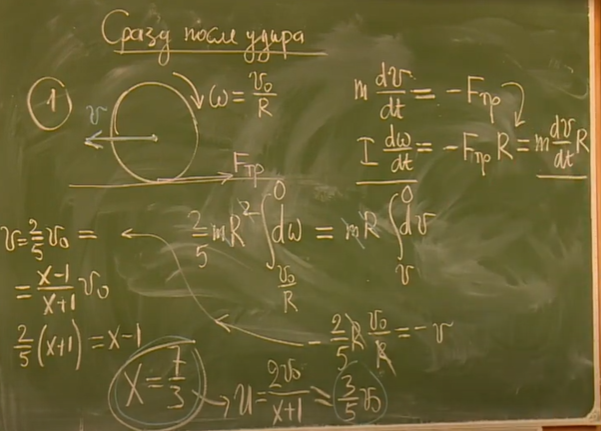 Сразу после удара
1
v
ω = v₀/R
Fтр
m dv/dt = -Fтр
I dω/dt = -Fтр R = m dv/dt R
2/5 mR² ∫_{v₀/R}^{0} dω = mR ∫_{v}^{0} dv
v = 2/5 v₀ =
= x-1/x+1 v₀
- 2/5 R v₀/R = -v
2/5 (x+1) = x-1
x = 7/3 → u = 2v₀/x+1 = 3/5 v₀